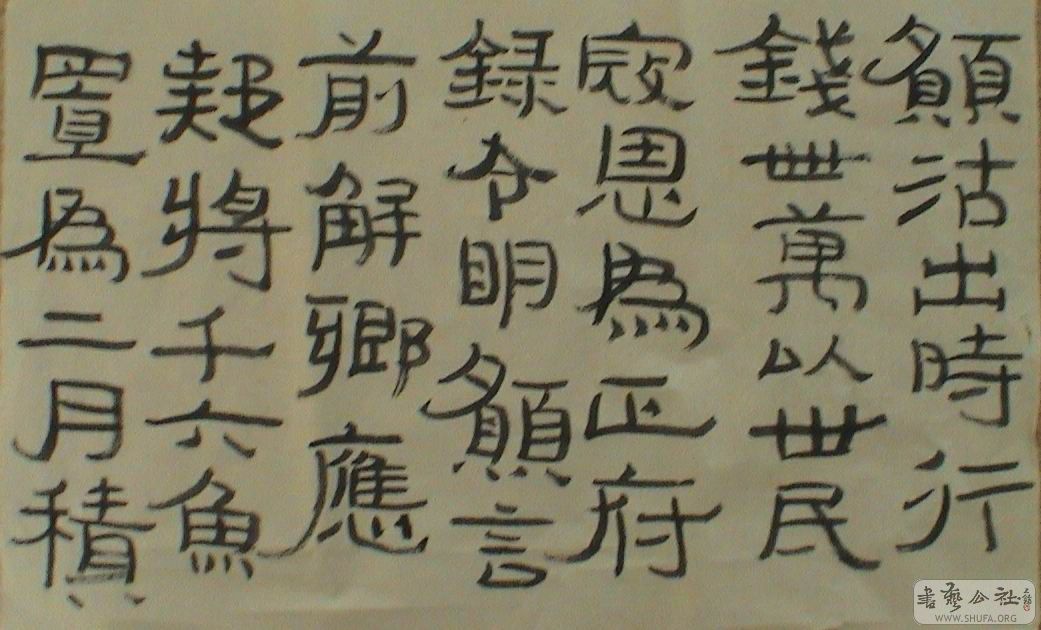 沽出時行
錢卌萬以卌民
寇恩為正府
録令明言
前解鄉應
將千六魚
置為二月積
書藝公社
WWW.SHUFA.ORG